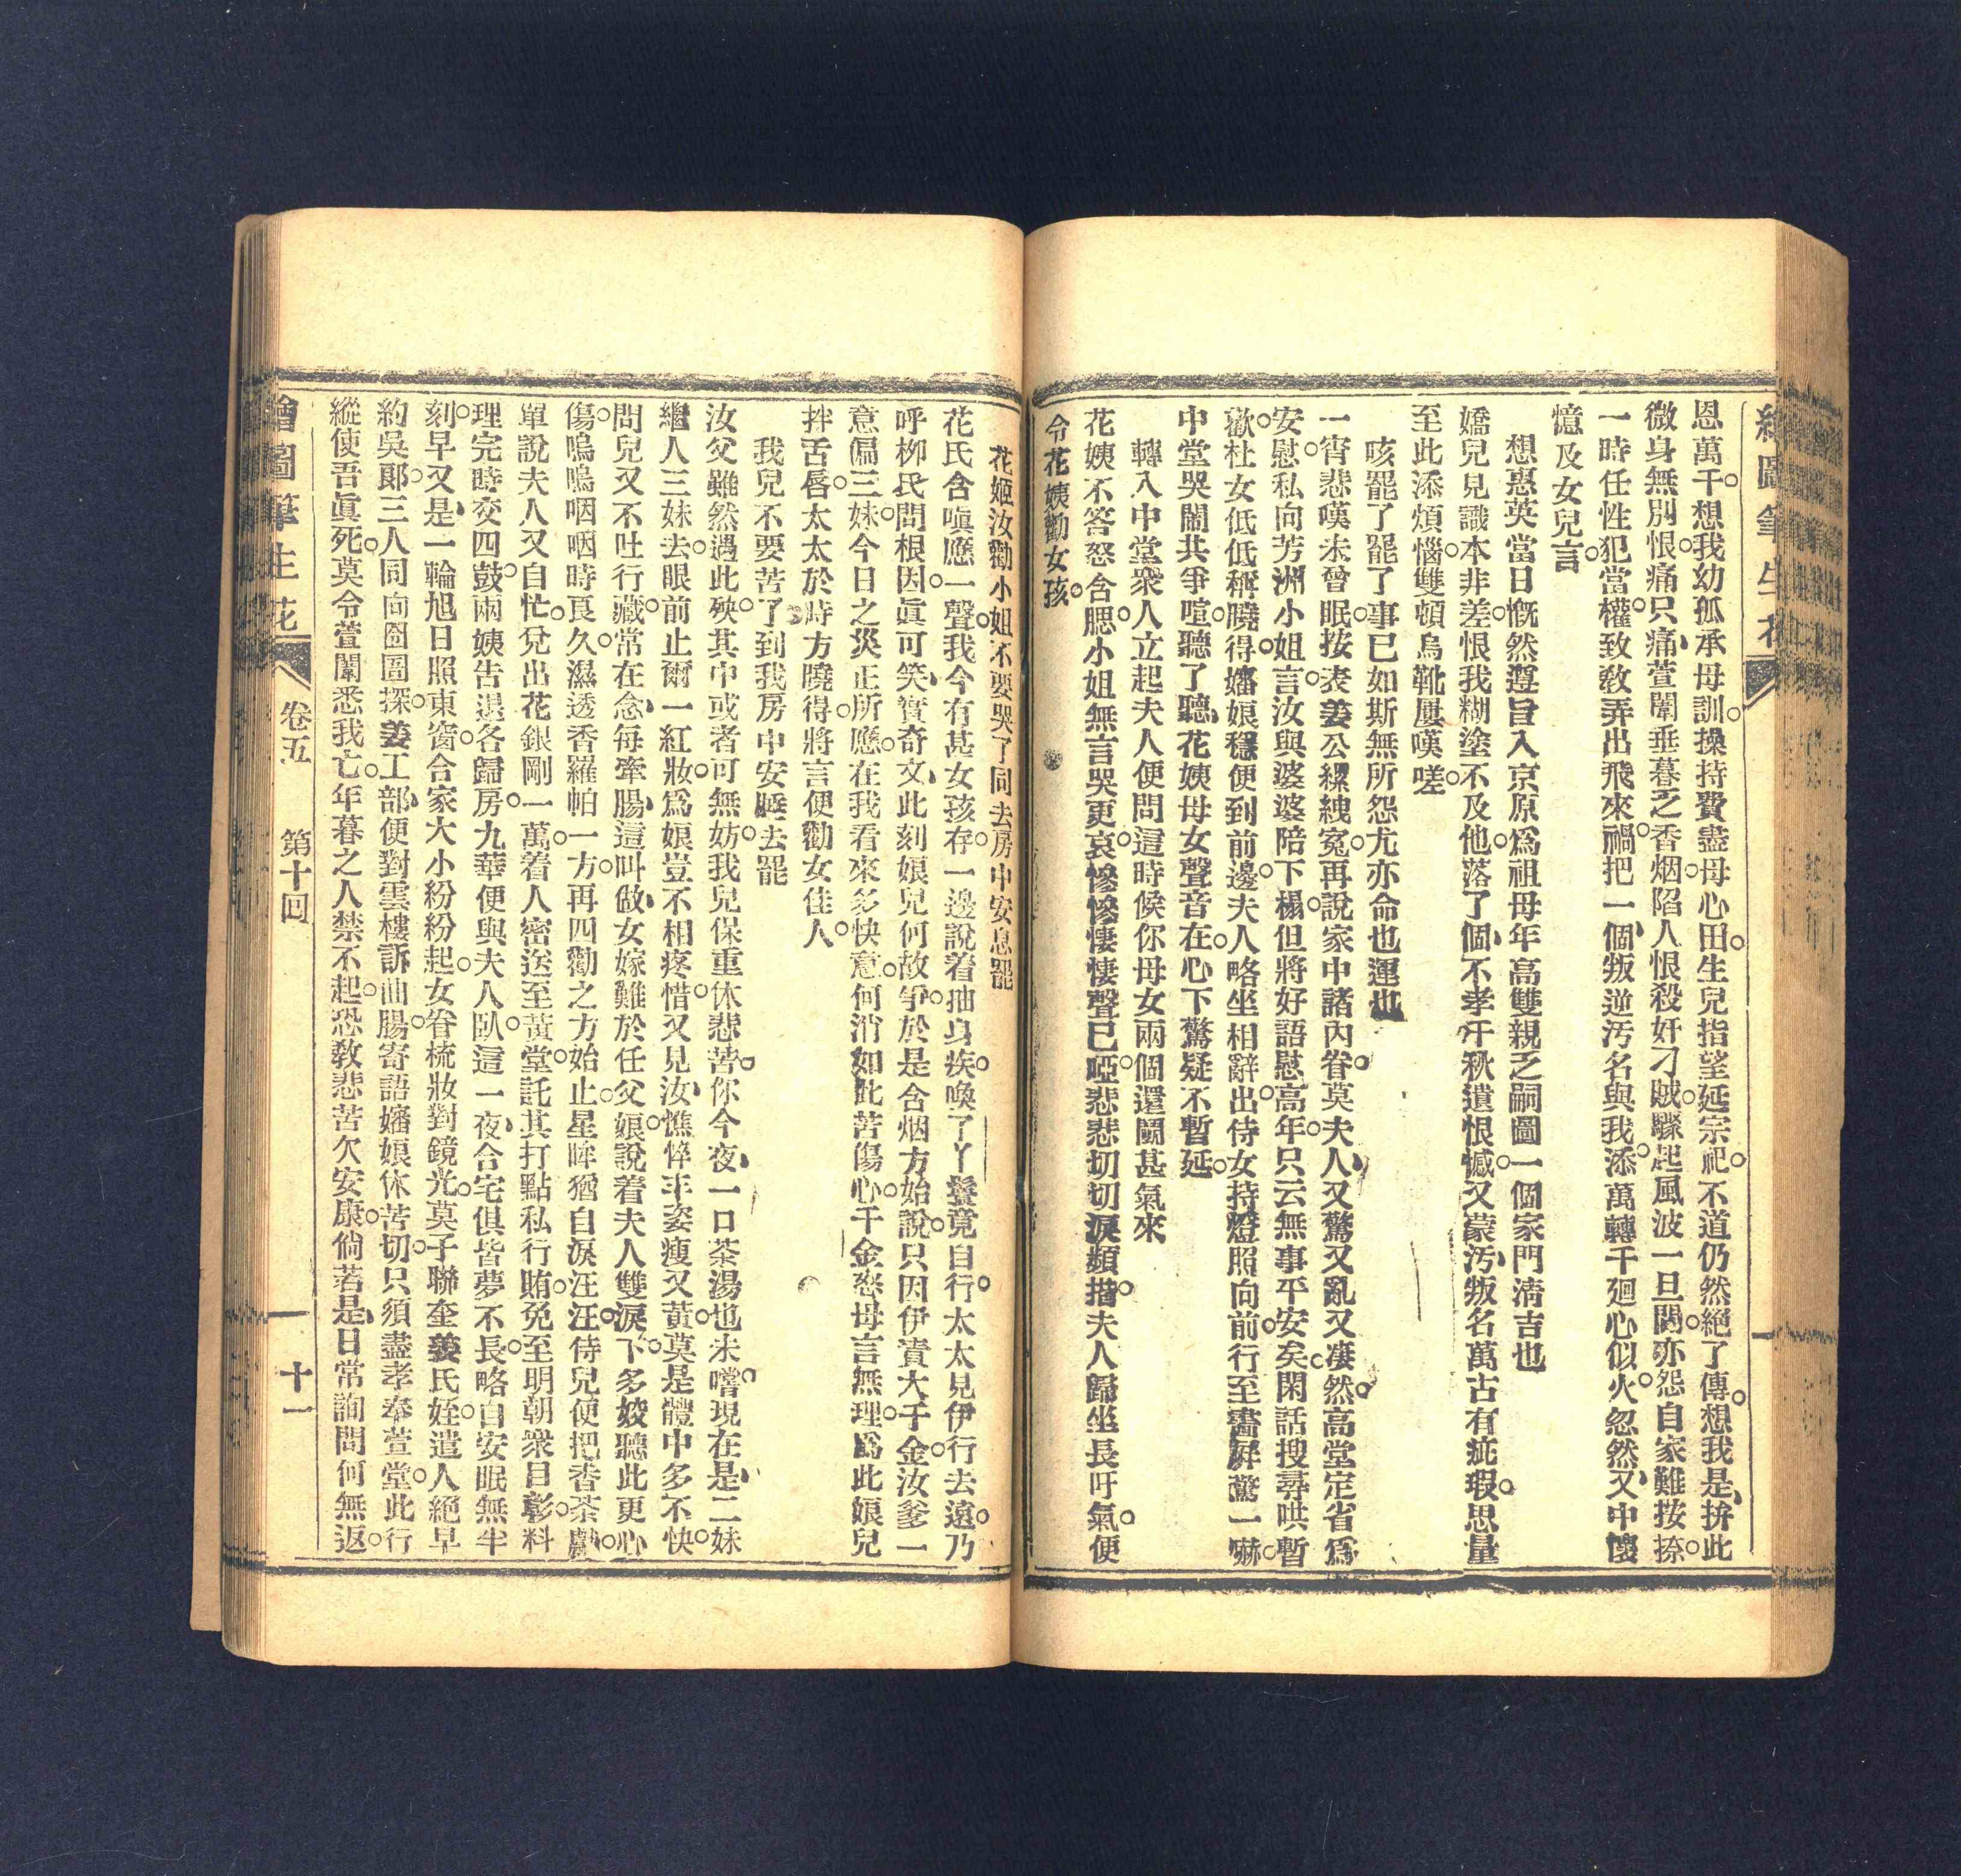 繪圖筆生花
恩萬千。想我幼孤承母訓。操持費盡母心田。生兒指望延宗祀。不道仍然絕了傳。想我是、拚此
微身無別恨。痛只痛、萱闈垂暮乏香烟。陷人恨殺奸刁賊。驟起風波一旦間。亦怨自家難按捺。
一時任性犯當權。致敎弄出飛來禍。把一個、叛逆污名與我添。萬轉千廻心似火。忽然又、中懷
憶及女兒言。
想惠英當日慨然遵旨入京原爲祖母年高雙親乏嗣圖一個家門淸吉也
嬌兒見識本非差。恨我糊塗不及他。落了個、不孝千秋遺恨憾。又蒙汚、叛名萬古有疵瑕。思量
至此添煩惱。雙頓烏靴屢嘆嗟。
咳罷了罷了事已如斯無所怨尤亦命也運也
一宵悲嘆未曾眠。按表姜公縲絏冤。再說家中諸內眷。莫夫人、又驚又亂又凄然。高堂定省爲
安慰。私向芳洲小姐言。汝與婆婆陪下榻。但將好語慰高年。只云無事平安矣。閑話搜尋哄暫
歡。杜女低低稱曉得。嬸娘穩便到前邊。夫人略坐相辭出。侍女持燈照向前。行至畵屛驚一嚇。
中堂哭鬧共爭喧。聽了聽、花姨母女聲音在。心下驚疑不暫延。
轉入中堂衆人立起夫人便問這時候你母女兩個還鬪甚氣來
花姨不答怒含腮。小姐無言哭更哀。慘慘悽悽聲已啞。悲悲切切淚頻揩。夫人歸坐長吁氣。便
令花姨勸女孩。
花姬汝勸小姐不要哭了同去房中安息罷
花氏含嗔應一聲。我今有甚女孩存。一邊說着抽身疾。喚了丫鬟竟自行。太太見伊行去遠。乃
呼柳氏問根因。眞可笑、實奇文、此刻娘兒何故爭。於是含烟方始說。只因伊責大千金。汝爹一
意偏三妹。今日之災正所應。在我看來多快意。何消如此苦傷心。千金怒母言無理。爲此娘兒
拌舌唇。太太於時方曉得。將言便勸女佳人。
我兒不要苦了到我房中安睡去罷
汝父雖然遇此殃。其中或者可無妨。我兒保重休悲苦。你今夜、一口茶湯也未嚐。現在是、二妹
繼人三妹去。眼前止爾一紅妝。爲娘豈不相疼惜。又見汝、憔悴丰姿瘦又黃。莫是體中多不快。
問兒又不吐行藏。常在念、每牽腸、這叫做、女嫁難於任父娘。說着夫人雙淚下。多姣聽此更心
傷。嗚嗚咽咽時良久。濕透香羅帕一方。再四勸之方始止。星眸猶自淚汪汪。侍兒便把香茶獻。
單說夫人又自忙。兌出花銀剛一萬。着人密送至黃堂。託其打點私行賄。免至明朝衆目彰。料
理完時交四鼓。兩姨告退各歸房。九華便與夫人臥。這一夜、合宅俱皆夢不長。略自安眠無半
刻。早又是、一輪旭日照東窗。合家大小紛紛起。女眷梳妝對鏡光。莫子聯奎姜氏姪。遣人絕早
約吳郞。三人同向囹圄探。姜工部、便對雲樓訴曲腸。寄語嬸娘休苦切。只須盡孝奉萱堂。此行
縱使吾眞死。莫令萱闈悉我亡。年暮之人禁不起。恐敎悲苦欠安康。倘若是、日常詢問何無返。
繪圖筆生花 卷五 第十回 十一